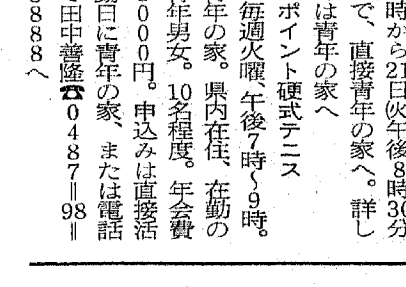 時から21日(火)午後8時30分
で、直接青年の家へ。詳し
は青年の家へ
ポイント硬式テニス
毎週火曜、午後7時〜9時。
年の家。県内在住、在勤の
年男女。10名程度。年会費
000円。申込みは直接活
動日に青年の家、または電話
田中善隆☎0487=98=
888へ